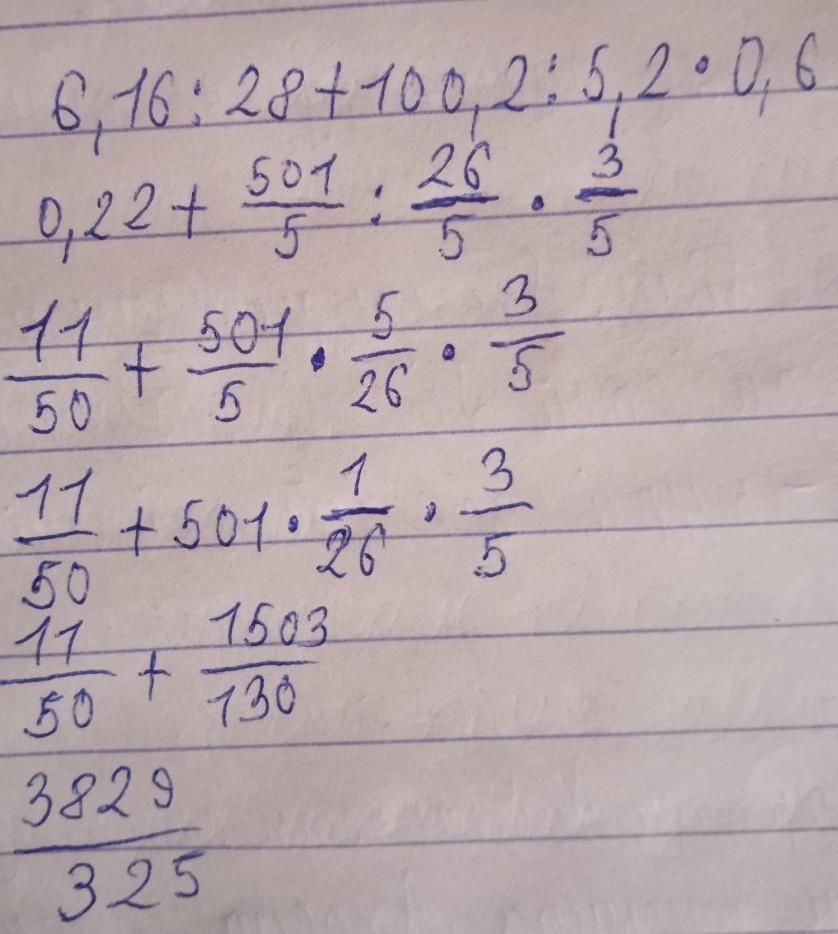 6,16:28+100,2:5,2·0,6
0,22+501/5:26/5·3/5
11/50+501/5·5/26·3/5
11/50+501·1/26·3/5
11/50+1503/130
3829/325